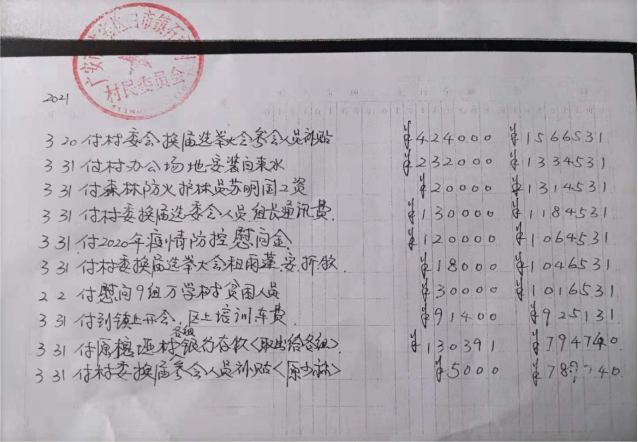 村民委员会
2021
3 20 付村委会换届选举大会参会人员补贴 ¥424000 ¥1566531
3 31 付村办公场地安装自来水 ¥232000 ¥1334531
3 31 付森林防火护林员苏明国工资 ¥20000 ¥1314531
3 31 付村委换届选委会人员,组长通讯费 ¥130000 ¥1184531
3 31 付2020年疫情防控慰问金 ¥120000 ¥1064531
3 31 付村委换届选举大会租雨蓬,安,拆, ¥18000 ¥1046531
2 2 付慰问9组万学树贫困人员 ¥30000 ¥1016531
3 31 付到镇上开会,区上培训车费 ¥91400 ¥925131
各组
3 31 付原 村银行存款<取出给各组> ¥130391 ¥794740
3 31 付村委换届参会人员补贴< > ¥5000 ¥78??40